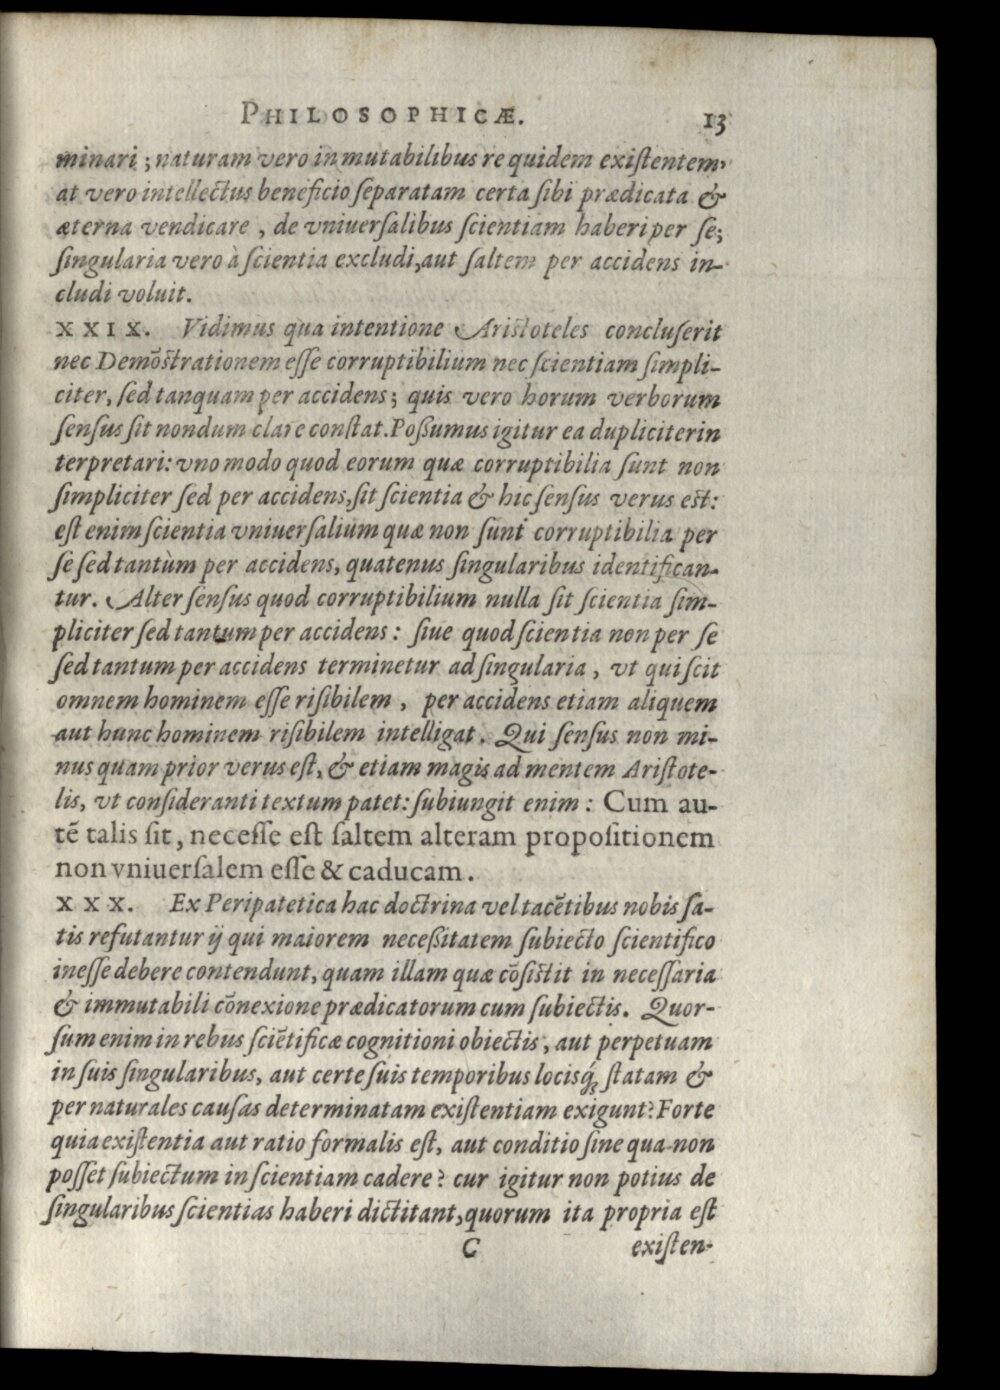 PHILOSOPHICÆ. 13
minari ; naturam vero in mutabilibus re quidem exiſtentem,
at vero intellectus beneficio ſeparatam certa ſibi prædicata &
æterna vendicare , de vniuerſalibus ſcientiam haberi per ſe;
ſingularia vero à ſcientia excludi, aut ſaltem per accidens in-
cludi voluit.
XXIX. Vidimus qua intentione Ariſtoteles concluſerit
nec Demõſtrationem eſſe corruptibilium nec ſcientiam ſimpli-
citer, ſed tanquam per accidens; quis vero horum verborum
ſenſus ſit nondum clare conſtat. Poßumus igitur ea dupliciter in
terpretari: vno modo quod eorum quæ corruptibilia ſunt non
ſimpliciter ſed per accidens, ſit ſcientia & hic ſenſus verus eſt:
eſt enim ſcientia vniuerſalium quæ non ſunt corruptibilia per
ſe ſed tantùm per accidens, quatenus ſingularibus identifican-
tur. Alter ſenſus quod corruptibilium nulla ſit ſcientia ſim-
pliciter ſed tantum per accidens : ſiue quod ſcientia non per ſe
ſed tantum per accidens terminetur ad ſingularia , vt qui ſcit
omnem hominem eſſe riſibilem , per accidens etiam aliquem
aut hunc hominem riſibilem intelligat. Qui ſenſus non mi-
nus quam prior verus eſt, & etiam magis ad mentem Ariſtote-
lis, vt conſideranti textum patet: ſubiungit enim : Cum au-
tẽ talis ſit, neceſſe eſt ſaltem alteram propoſitionem
non vniuerſalem eſſe & caducam.
XXX. Ex Peripatetica hac doctrina vel tacẽtibus nobis ſa-
tis refutantur ij qui maiorem neceßitatem ſubiecto ſcientifico
ineſſe debere contendunt, quam illam quæ cõſiſtit in neceſſaria
& immutabili cõnexione prædicatorum cum ſubiectis. Quor-
ſum enim in rebus ſciẽtificæ cognitioni obiectis, aut perpetuam
in ſuis ſingularibus, aut certe ſuis temporibus locisq́; ſtatam &
per naturales cauſas determinatam exiſtentiam exigunt? Forte
quia exiſtentia aut ratio formalis eſt, aut conditio ſine qua non
poſſet ſubiectum in ſcientiam cadere? cur igitur non potius de
ſingularibus ſcientias haberi dictitant, quorum ita propria eſt
C exiſten-